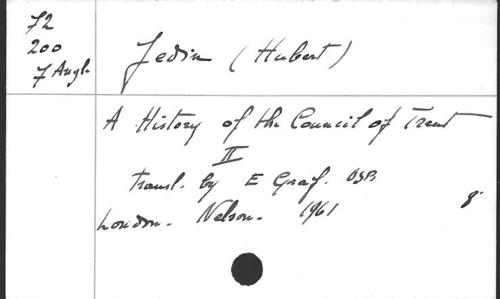 72
200
7 Angl.
Jedin (Hubert)
A History of the Council of Trent
II
Transl. by E Graf. OSB
London. Nelson. 1961 8°